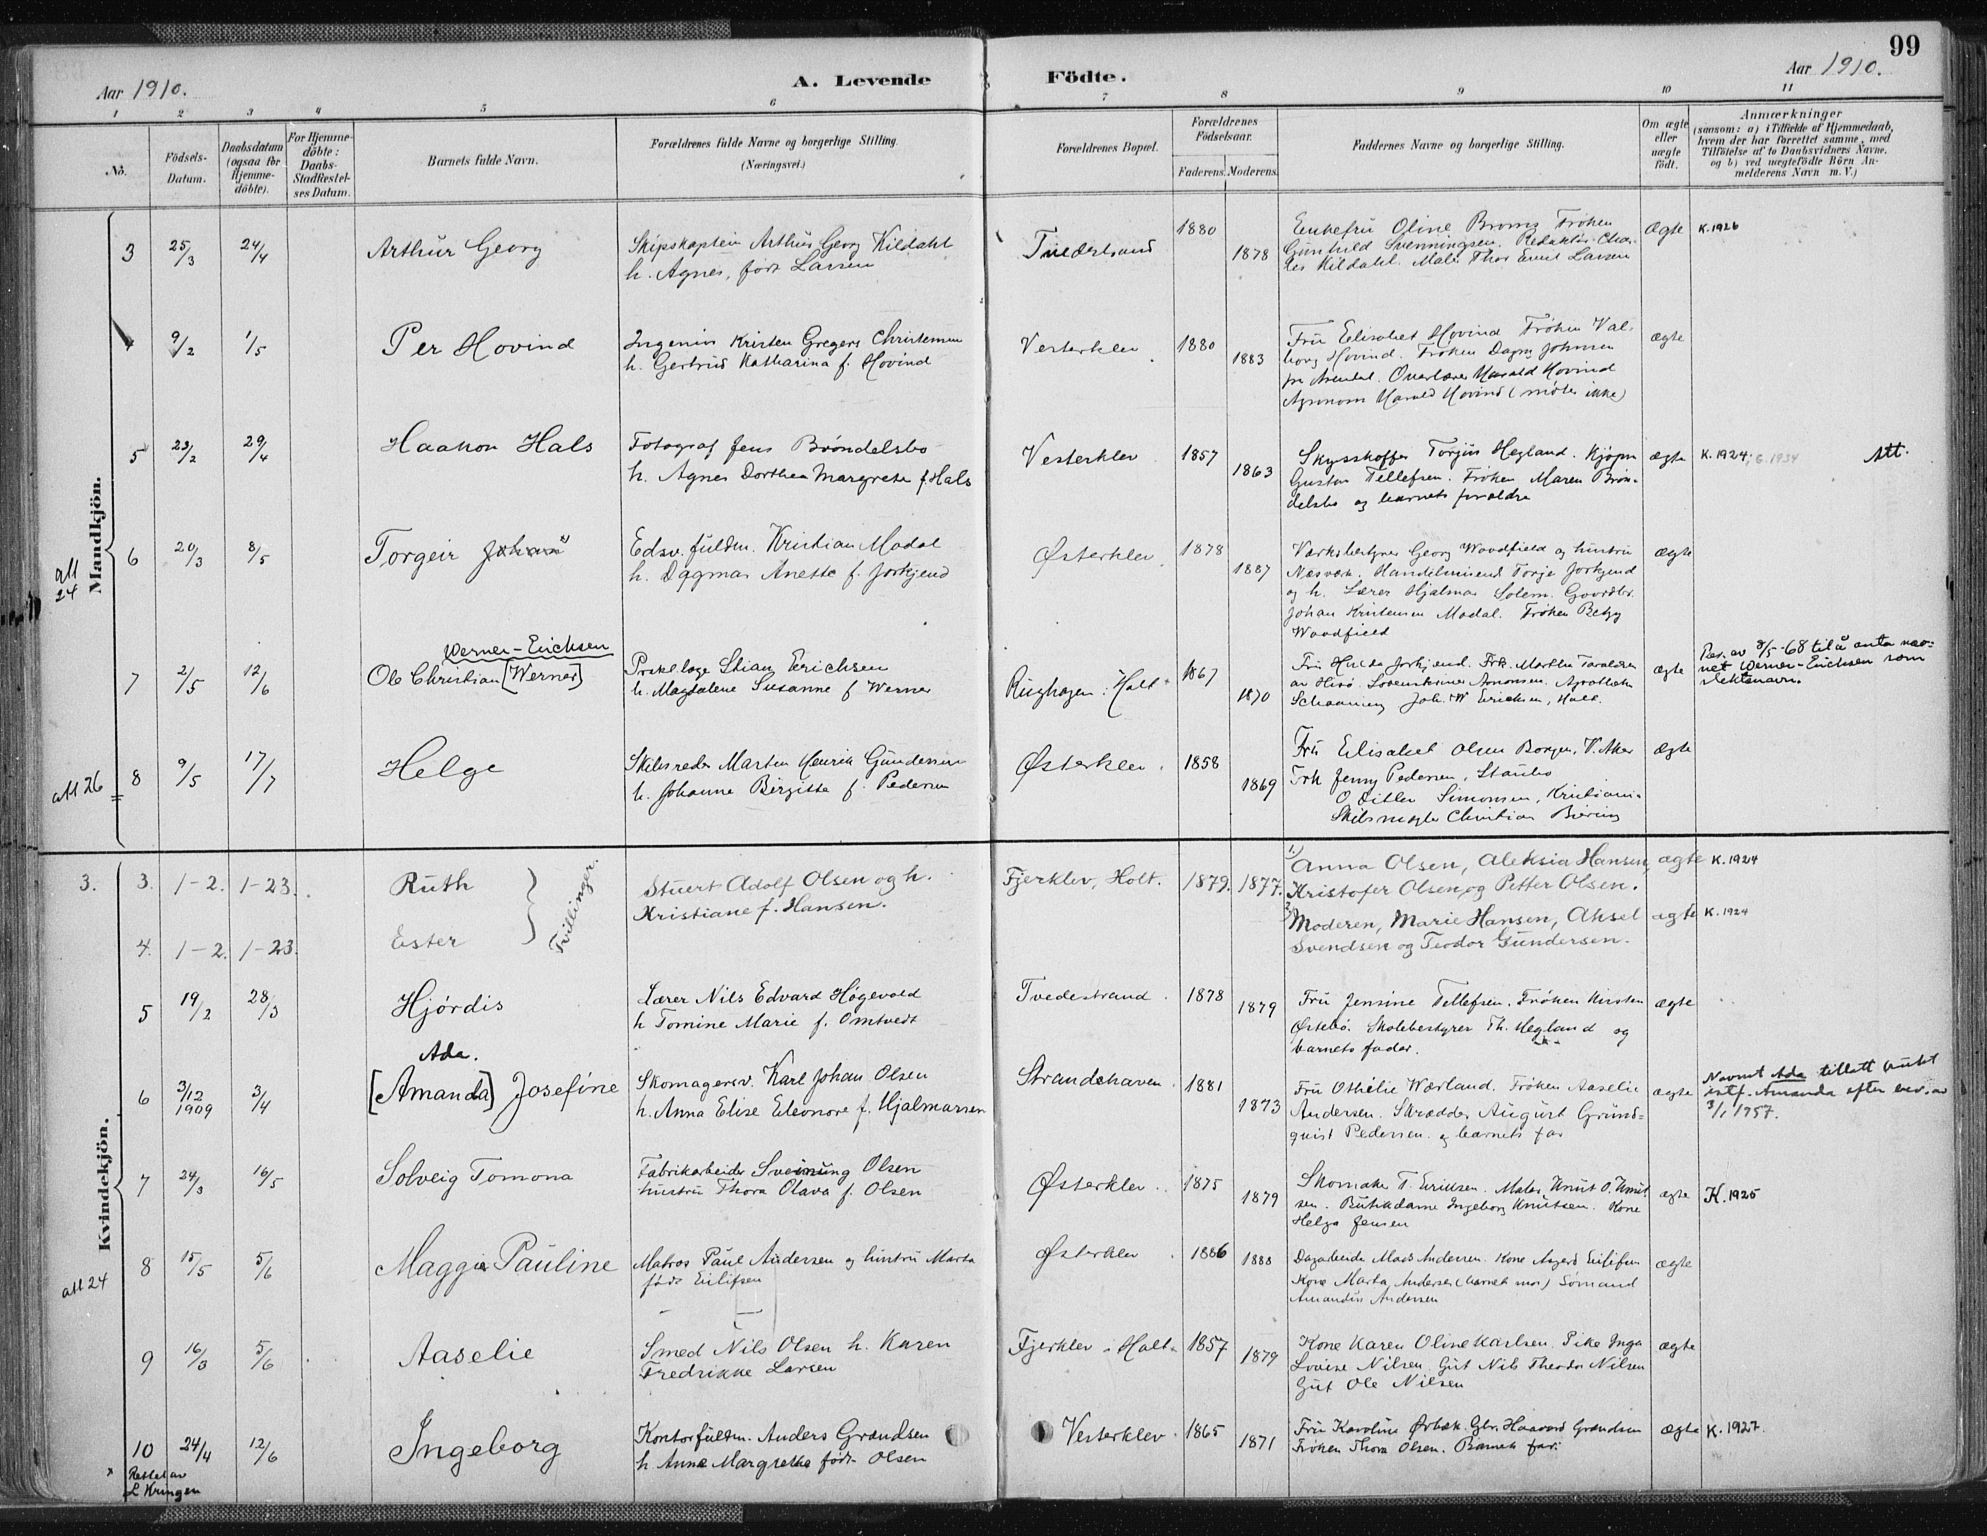 99
Aar 1910.
A. Levende Födte.
Aar 1910.
1 2 3 4 5 6 7 8 9 10 11
No.
Födsels-Datum.
Daabsdatum (ogsaa for Hjemme-döbte).
For Hjemme-döbte: Daabs-Stadfæstel-ses Datum.
Barnets fulde Navn.
Forældrenes fulde Navne og borgerlige Stilling.
(Næringsvei.)
Forældrenes Bopæl.
Forældrenes Födselsaar.
Faderens. Moderens.
Faddernes Navne og borgerlige Stilling.
Om ægte eller uægte født.
Anmærkninger
(saasom: a) i Tilfælde af Hjemmedaab,
hvem der har forrettet samme, med
Tilföielse af to Daabsvidners Navne,
og b) ved uægtefödte Börn An-
melderens Navn m. V.)
Mandkjön.
3 25/3 24/4 Arthur Georg
Skipskaptein Arthur Georg Kildahl
h. Agnes, født Larsen
Tvedestrand 1880 1878
Enkefru Oline Fröken
Gunhild Svenningsen. Redaktör Char-
les Kildahl. Maler Thor Emil Larsen
Ægte K. 1926
9/2 1/5 Per Hovind
Ingeniör Kristen Gregers Christensen
h. Gertrud Katharina f. Hovind
Vesterklev 1880 1883
Fru Elisabet Hovind Fröken Val-
borg Hovind. Fröken Dagny Johnsen
fra Arendal. Overlærer Harald Hovind
Agronom Harald Hovind (møter ikke)
ægte
5 23/2 29/4 Haakon Hals
Fotograf Jens Bröndelsbo
h. Agnes Dorthea Margrete f. Hals
Vesterklev 1857 1863
Skysskaffer Torjus Hegland. Kjöpm
Gustav Tellefsen. Fröken Maren Brön-
delsbo og barnets foraldre
ægte K. 1924; G. 1934 Att.
att 24
6 20/3 8/5 Torgeir Johan
Edsv. fuldm. Kristian Modal
h. Dagmar Anette f. Jorkjend
Østerklev 1878 1887
Værksbestyrer Georg Woodfield og hustru
Næsværk. Handelsreisende Torje Jorkjend
og h. Lærer Hjalmar Solem. Gaardbr.
Johan Kristensen Modal. Fröken Betzy
Woodfield
ægte
Werner-Erichsen
7 2/5 12/6 Ole Christian [Werner]
Stian Erichsen
h. Magdalene Susanne f Werner
Holt 1867 1870
Fru Hulda Jorkjend. Frk. Marthe
Aanonsen. Apotheker
Schaaning Joh. W Erichsen, Holt.
ægte
av 8/5-68 til å anta nav-
net Werner-Erichsen som
slektsnavn.
att 26
8 9/5 17/7 Helge
Skibsreder Marten Henrik Gundersen
h. Johanne Birgitte f. Pedersen
Østerklev 1858 1869
Fru Elisabet Olsen Borgen, V. Aker
Frk Jenny Pedersen, Staubo
O Ditlev Simonsen, Kristiania
Skibsmægler Christian Biering
ægte
Kvindekjön.
3. 3. 1-2. 1-23. Ruth
4. 1-2. 1-23. Ester
Tvillinger.
Stuert Adolf Olsen og h.
Kristiane f. Hansen.
Fjerklev, Holt. 1879. 1877.
1) Anna Olsen, Aleksia Hansen,
Kristofer Olsen, og Petter Olsen.
ægte K. 1924
2) Moderen, Marie Hansen, Aksel
Svendsen og Teodor Gundersen.
ægte K. 1924
5 19/2 28/3 Hjørdis
Lærer Nils Edvard Högevold
h Tomine Marie f. Omtvedt
Tvedestrand 1878 1879
Fru Jensine Tellefsen. Fröken Kirsten
Østebö. Skolebestyrer Th. Hegland og
barnets fader.
ægte
Ada.
6 3/12 1909 3/4 [Amanda] Josefine
Skomagersv. Karl Johan Olsen
h. Anna Elise Eleonore f. Hjalmarsen
Strandehaven 1881 1873
Fru Othilie Wærland. Fröken Aaselie
Andersen. Skrædder August Grund-
quist Pedersen og barnets far
ægte
Navnet Ada tillatt brukt
istf. Amanda efter bev. av
3/1 1957.
7 24/3 16/5 Solveig Tomona
Fabrikarbeider Sveinung Olsen
hustru Thora Olava f. Olsen
Østerklev 1875 1879
Skomaker T. Eriksen. Maler Knut O. Knut-
sen. Butikdame Ingeborg Knutsen. Kone
Helga Jensen
ægte K. 1925
att 24
8 15/5 5/6 Maggie Pauline
Matros Paul Andersen og hustru Marta
født Eilifsen
Østerklev 1886 1888
Dagarbeider Mads Andersen. Kone Asgerd Eilifsen
Kone Marta Andersen (barnets mor) Sömand
Amandus Andersen
ægte
9 16/3 5/6 Aaselie
Smed Nils Olsen h. Karen
Fredrikke Larsen
Fjerklev i Holt 1857 1879
Kone Karen Oline Karlsen. Pike Inga
Lovise Nilsen. Gut Nils Theodor Nilsen
Gut Ole Nilsen
ægte
10 24/4 12/6 Ingeborg
Kontorfuldm. Anders Grandsen
h. Anne Margrethe født Olsen
Vesterklev 1865 1871
Fru Karoline Ørbæk. Gbr. Haavard Grandsen
Fröken Thora Olsen. Barnets far.
ægte K. 1927.
Rettet av
L Kringen